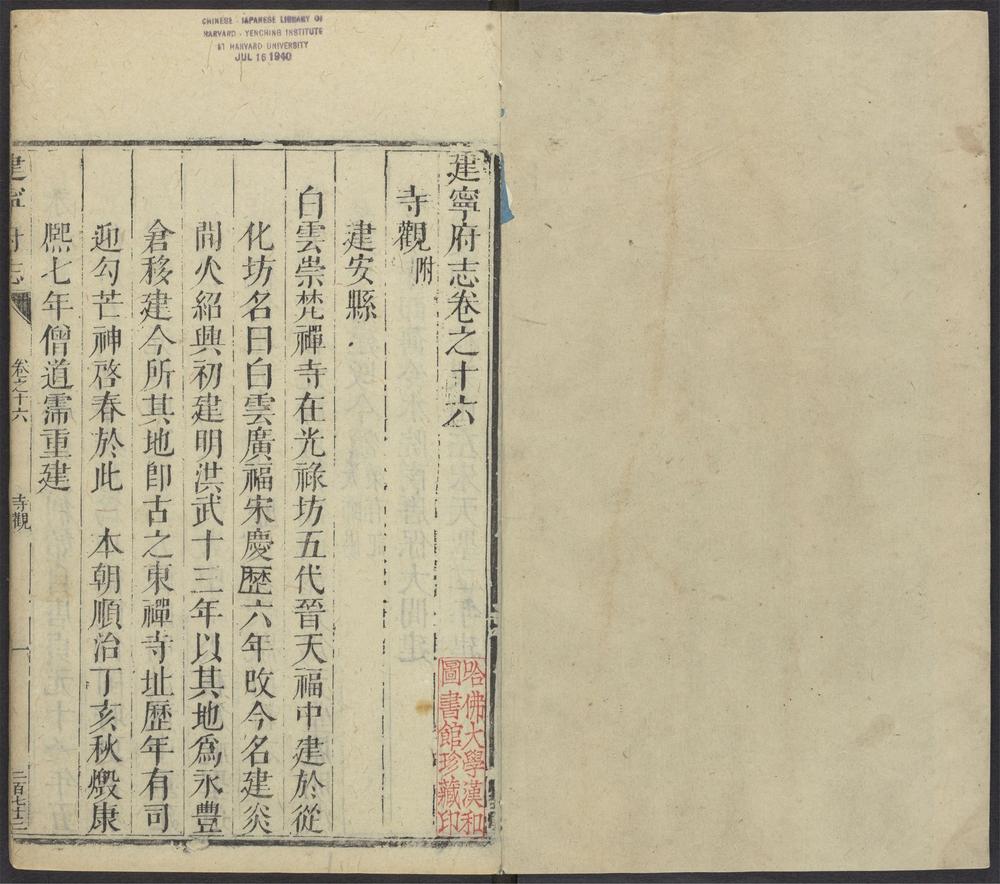 CHINESE - JAPANESE LIBRARY OF
HARVARD - YENCHING INSTITUTE
AT HARVARD UNIVERSITY
JUL 16 1940
建寧府志卷之十六
寺觀附
建安縣
白雲崇梵禪寺在光祿坊五代晉天福中建於從
化坊名曰白雲廣福宋慶歷六年改今名建炎
間火紹興初建明洪武十三年以其地爲永豐
倉移建今所其地卽古之東禪寺址歷年有司
迎勾芒神啓春於此 本朝順治丁亥秋燬康
熈七年僧道需重建
建寧府志
卷之十六
寺觀
一
哈佛大學漢和
圖書館珍藏印